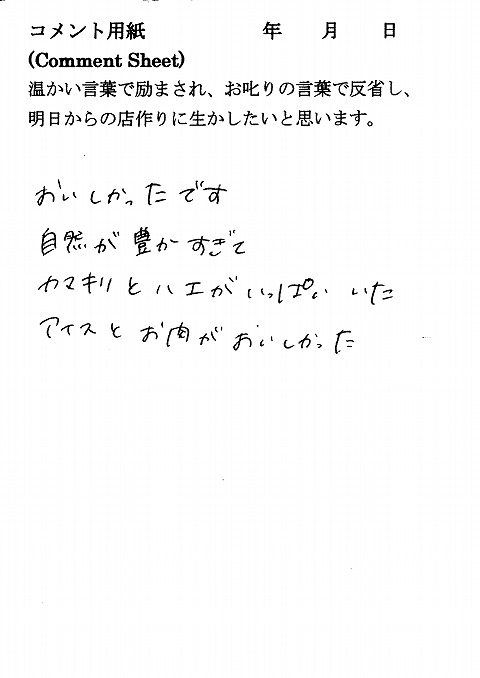 コメント用紙 年 月 日
(Comment Sheet)
温かい言葉で励まされ、お叱りの言葉で反省し、
明日からの店作りに生かしたいと思います。
おいしかったです
自然が豊かすぎて
カマキリとハエがいっぱい いた
アイスと お肉が おいしかった